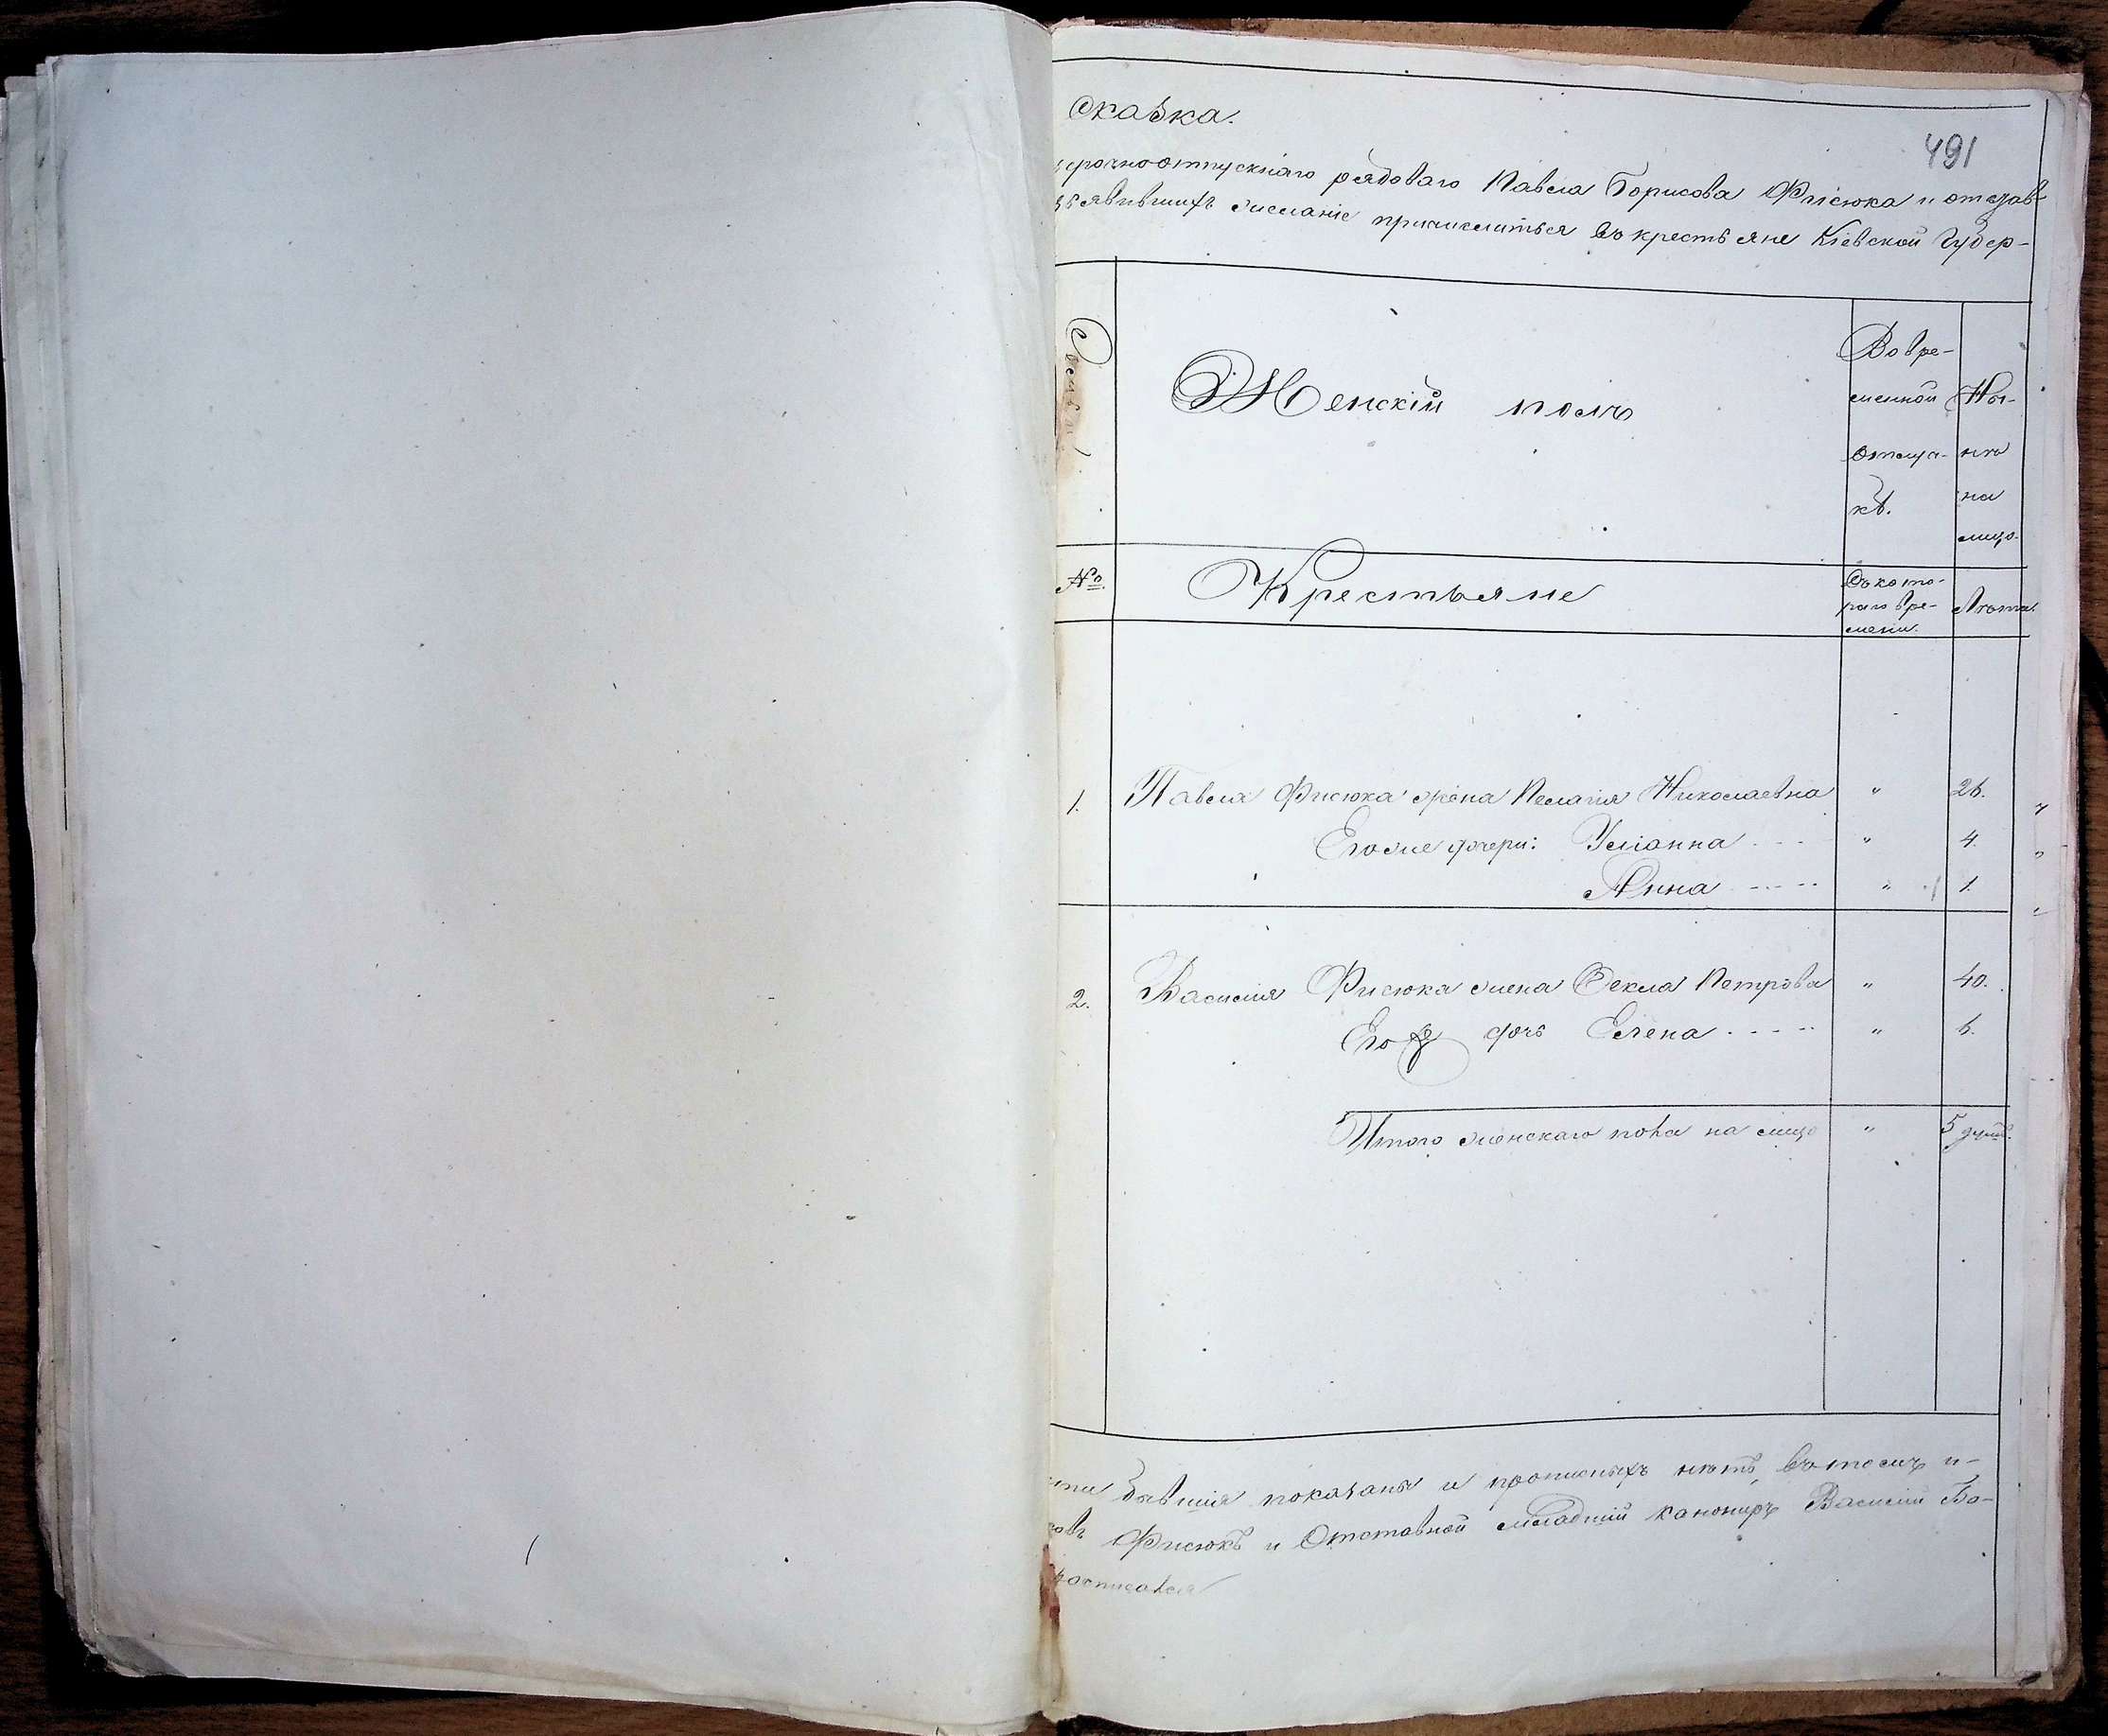 сказка.
491
срочноотпускнаго рядоваго Павла Борисова Фисюка и отстав-
ъявившихъ желаніе причислиться въ крестьяне Кіевской Губер-
Семьи
Женскій полъ
Во вре-
менной
отлуч-
кѣ.
Ны-
нѣ
на
лицо.
№
Крестьяне
Съ кото-
раго вре-
мени.
Лѣта.
1. Павла Фисюка жена Пелагія Николаевна " 26.
Его же дочери: Уліанна " 4.
Анна " 1.
2. Василія Фисюка жена Фекла Петрова " 40.
Его же дочь Елена " 6.
Итого женскаго пола на лицо " 5 душъ.
бывшія показаны и прописныхъ нѣтъ, въ томъ и-
совъ Фисюкъ и Отставной младшій канониръ Василій Бо-
росписался